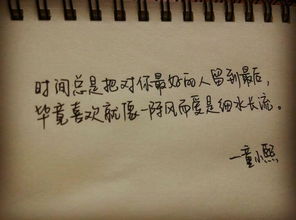 时间总是把对你最好的人留到最后，
毕竟喜欢就像一阵风而爱是细水长流。
一童小熙